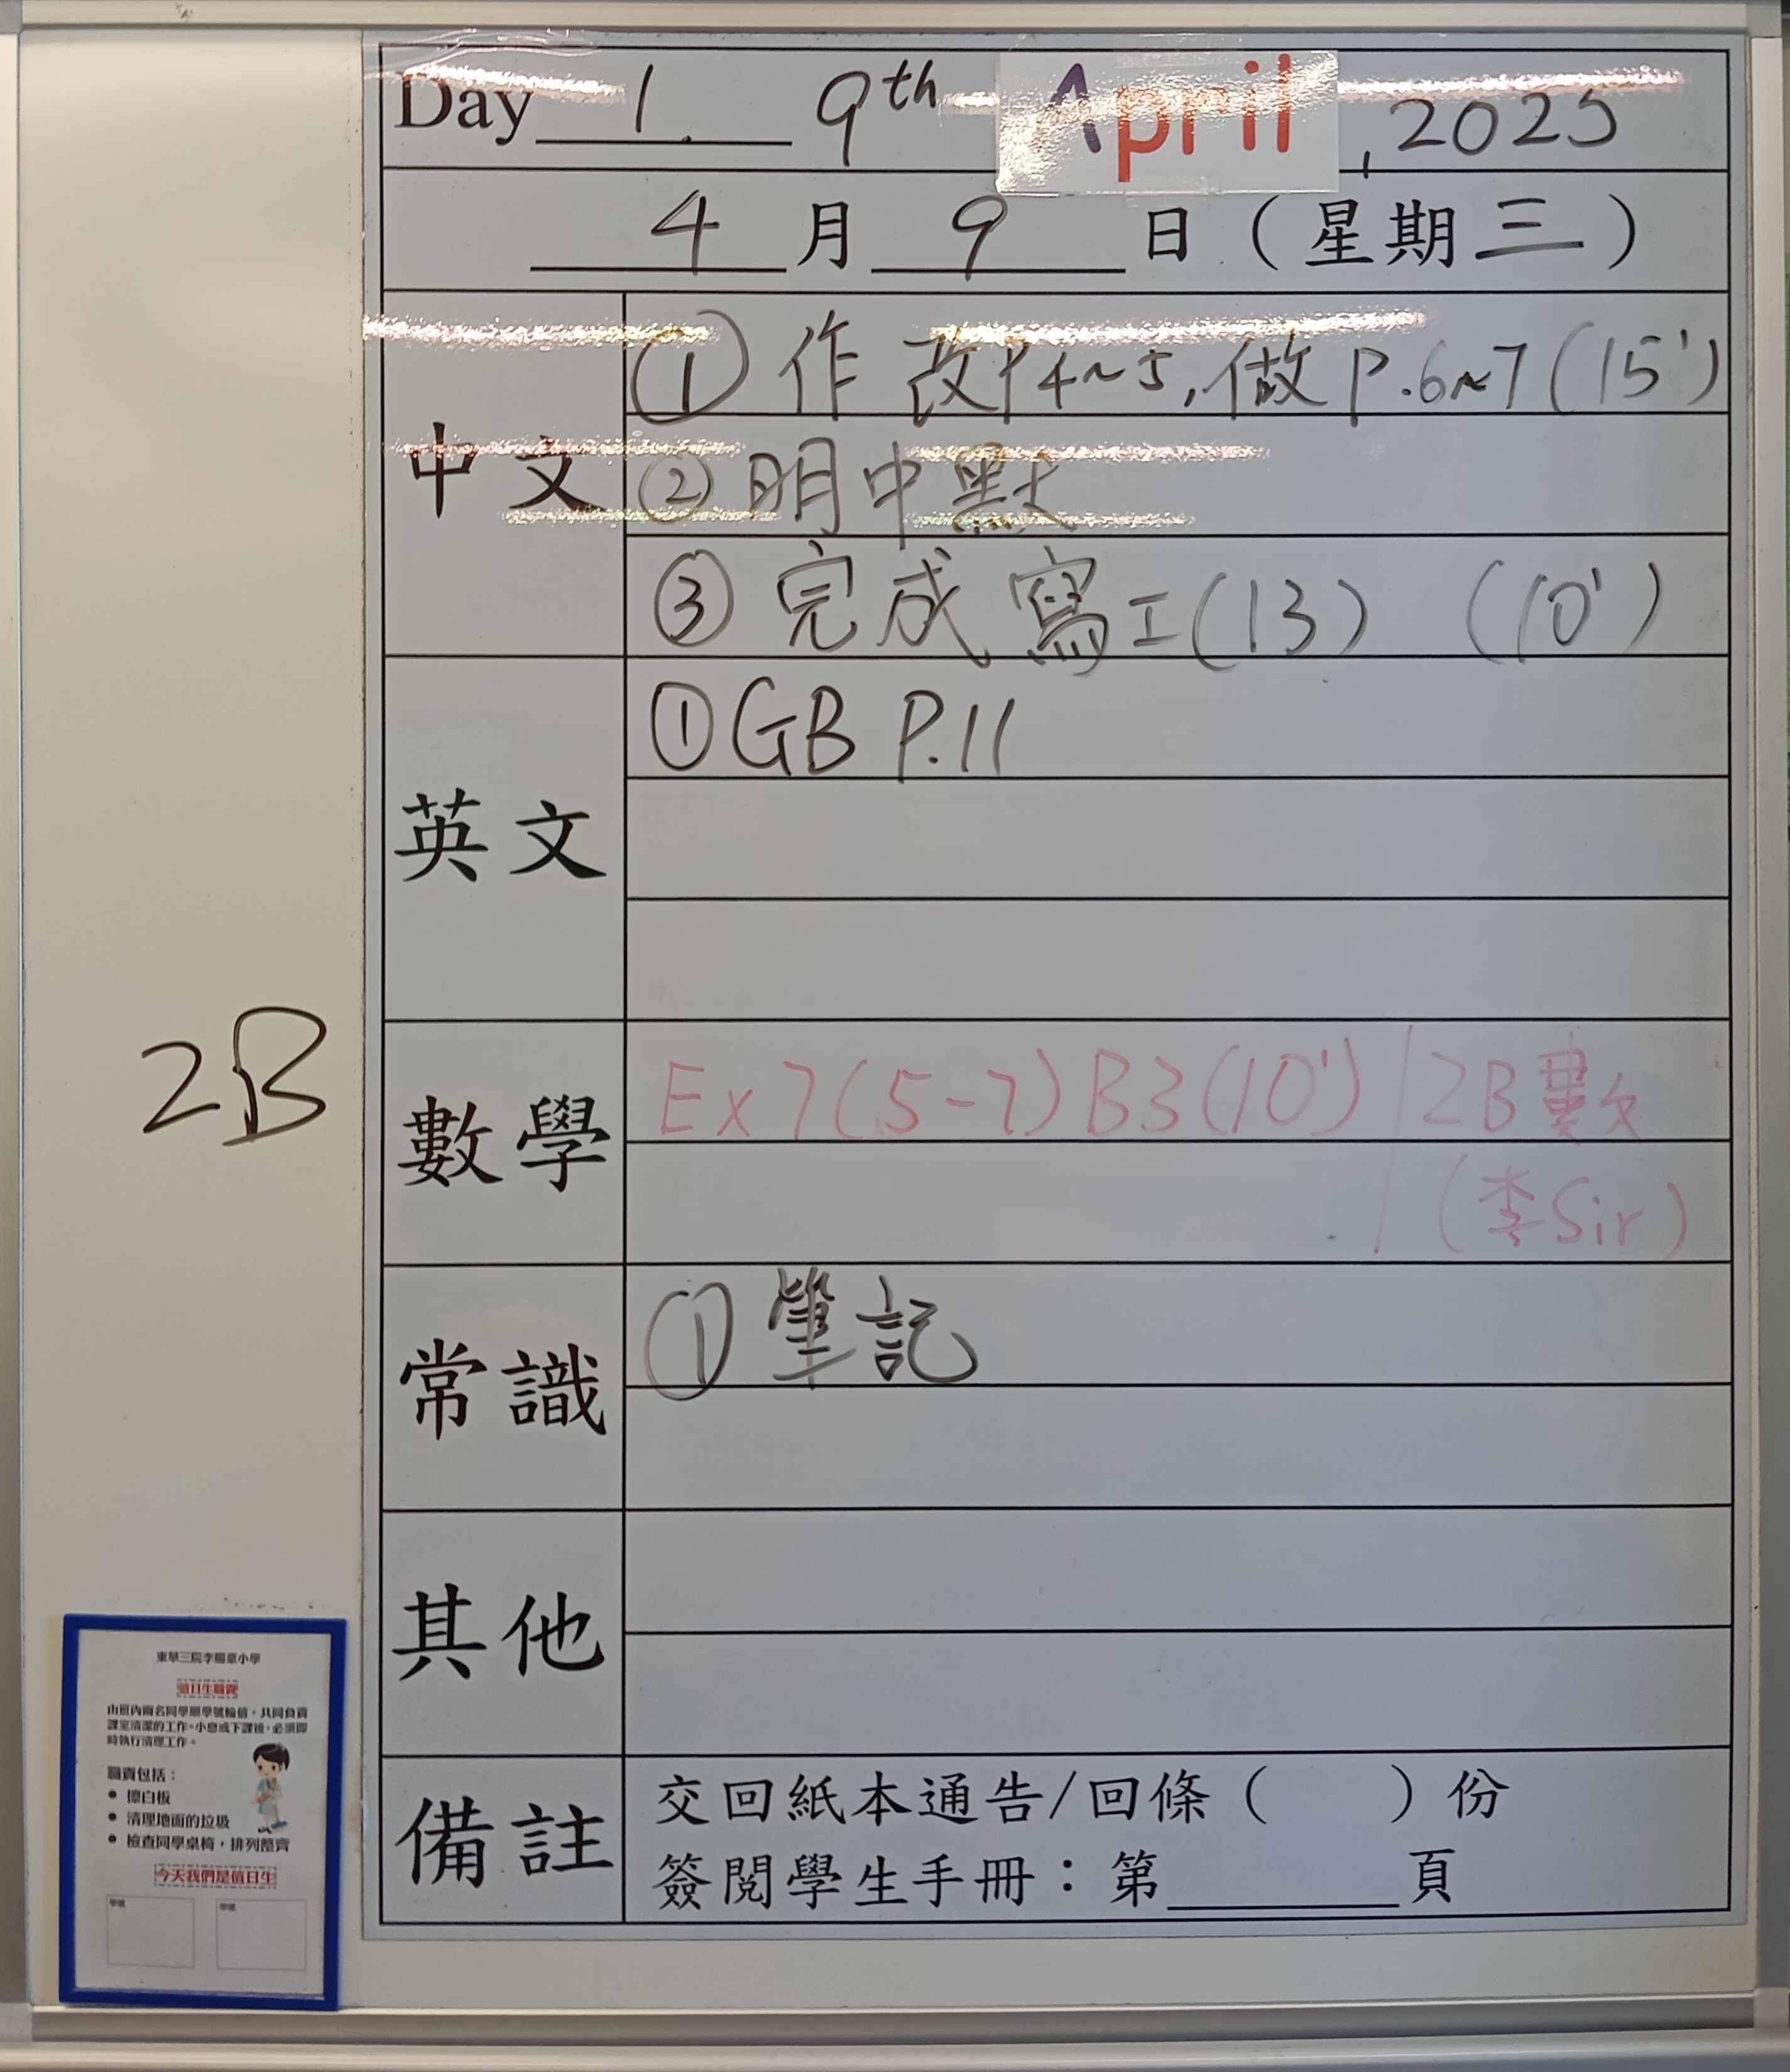 Day 1 9th April, 2025
4月9日(星期三)
中文
① 作 改P4~5,做P.6~7(15')
② 明中默
③ 完成寫工(13) (10')
英文
① GB P.11
2B
數學
Ex7(5-7)B3(10') 2B數
(李Sir)
常識
① 筆記
其他
備註
交回紙本通告/回條( )份
簽閱學生手冊:第____頁
東華三院李賜豪小學
值日生職責
由班內兩名同學順學號輪值,共同負責
課室清潔的工作。小息或下課後,必須即
時執行清理工作。
職責包括:
• 擦白板
• 清理地面的垃圾
• 檢查同學桌椅,排列整齊
今天我們是值日生
學號 學號